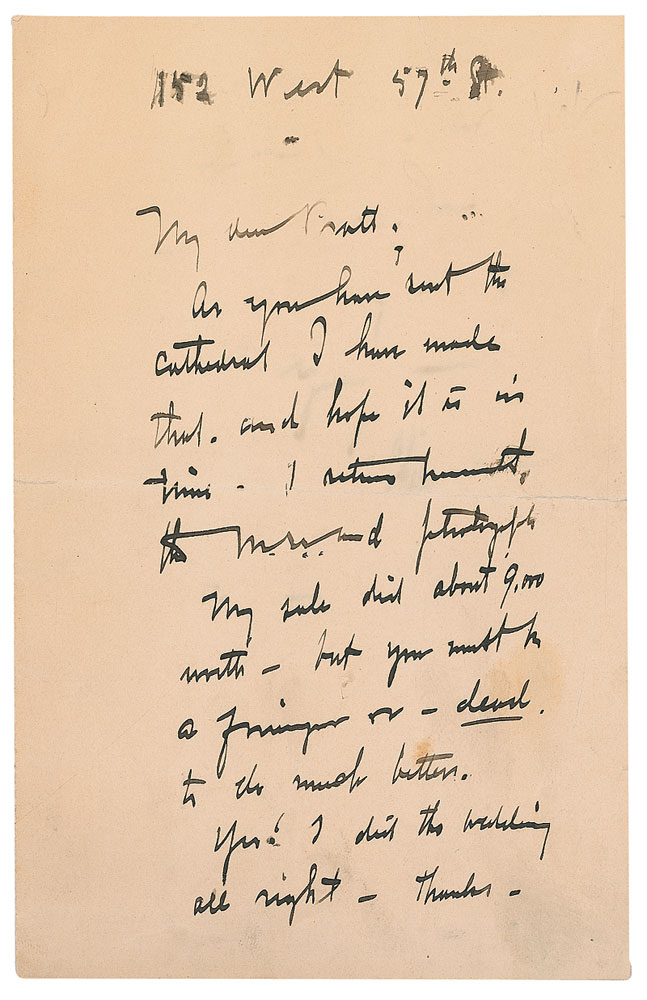 152 West 57th St.
My dear Pratt;
As you have sent the
cathedral I have made
that. and hope it is in
time - I return herewith
the M.S. and photograph
My sale did about 9,000
worth - but you must be
a foreigner or - dead.
to do much better.
Yes! I did the wedding
all right - Thanks -